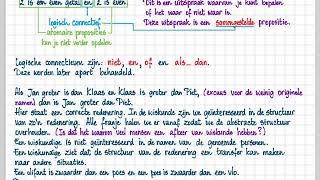 2 is een even getal en 2 is even
Dit is een uitspraak waarvan je kunt bepalen
of het waar of niet waar is.
logisch connectief
Deze uitspraak is een samengestelde propositie.
atomaire proposities
kun je niet verder opdelen
Logische connectieven zijn: niet, en, of en als... dan.
Deze worden later apart behandeld.
Als Jan groter is dan Klaas en Klaas is groter dan Piet, (excuus voor de weinig originele
namen) dan is Jan groter dan Piet.
Hier staat een correcte redenering. In de wiskunde zijn we geïnteresseerd in de structuur
van zo'n redenering. Alle franje halen we er vanaf zodat we de abstracte structuur
overhouden. (Is dat het waarom veel mensen een afkeer van wiskunde hebben?)
Een wiskundige is niet geïnteresseerd in de namen van de genoemde personen.
Een wiskundige ziet dat de structuur van de redenering een transfer kan maken
naar andere situaties.
Een olifant is zwaarder dan een poes en een poes is zwaarder dan een vlo.